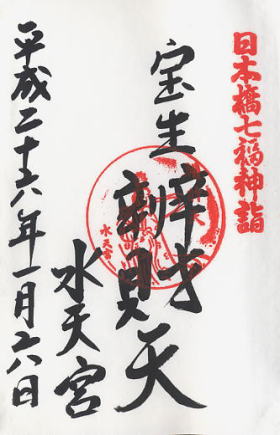 日本橋七福神詣
宝生辨財天
水天宮
水天宮
平成二十六年一月六日